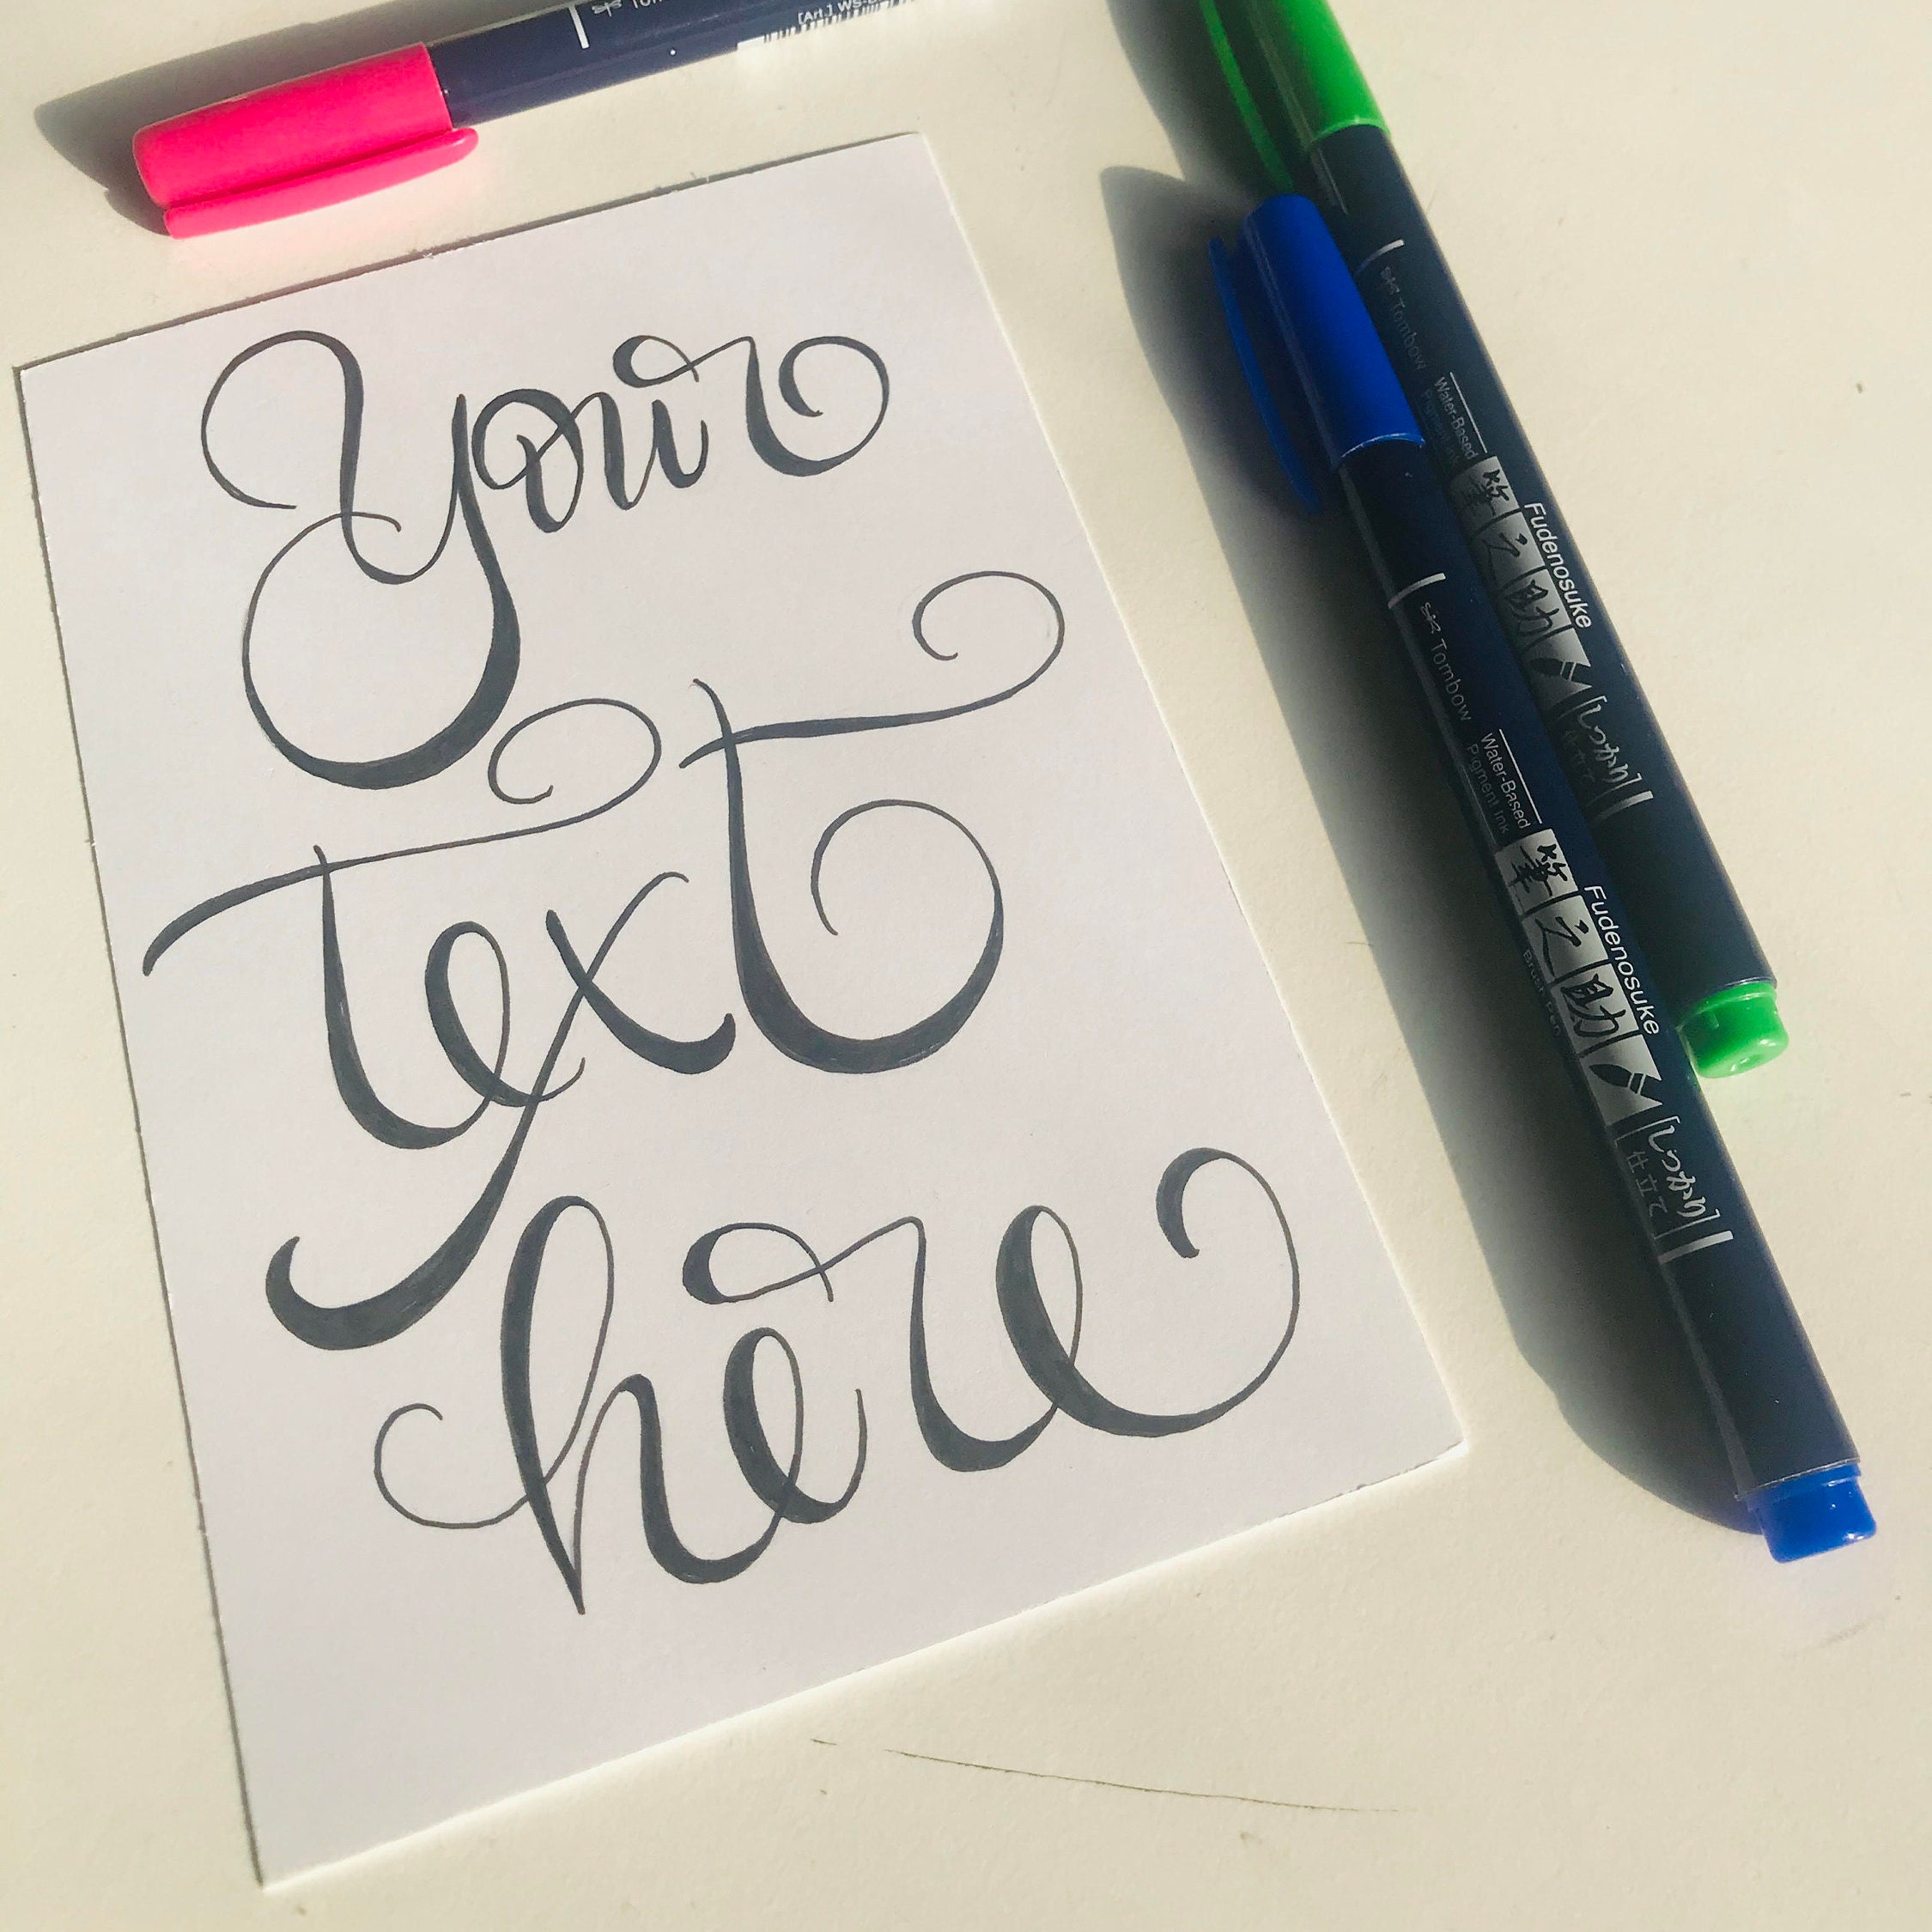 Your
Text
here
[Art.] WS-
Tombow
Water-Based
筆之助
Fudenosuke
[しっかり]
仕立て
Tombow
Water-Based
Pigment Ink
筆之助
Fudenosuke
Brush Pen
[しっかり]
仕立て